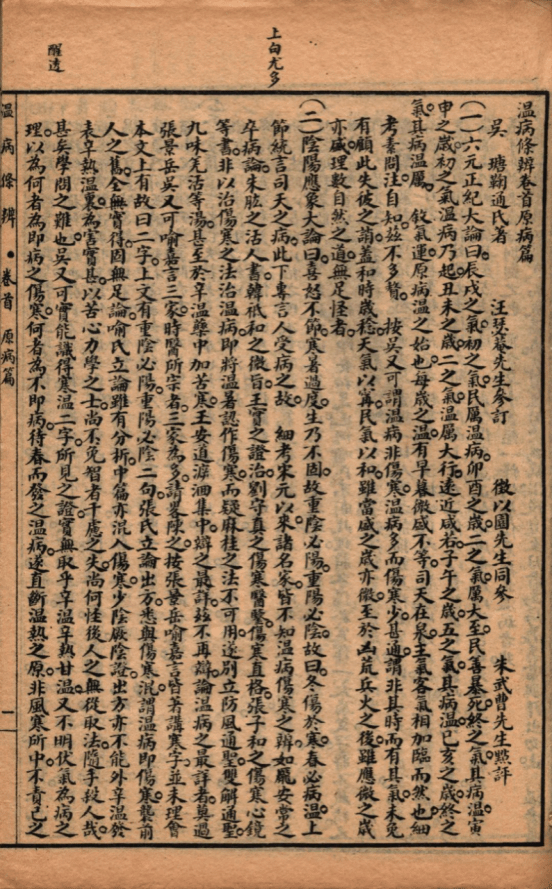 上白尤多
醒透
溫病條辨卷首原病篇
吳 瑭鞠通氏著 汪瑟菴先生參訂 徵以園先生同參 朱武曹先生點評
(一)六元正紀大論曰。辰戌之歲。初之氣。民厲溫病。卯酉之歲。二之氣。厲大至。民善暴死。終之氣。其病溫。寅
申之歲。初之氣。溫病乃起。丑未之歲。二之氣。溫厲大行。遠近咸若。子午之歲。五之氣。其病溫。巳亥之歲。終之
氣。其病溫厲。 敘氣運。原病溫之始也。每歲之溫。有早暮微盛不等。司天在泉。主氣客氣。相加臨而然也。細
考素問注自知。茲不多贅。 按吳又可謂溫病非傷寒。溫病多而傷寒少。甚通。謂非其時而有其氣。未免
有顧此失彼之誚。蓋和時歲稔。天氣以寧。民氣以和。雖當盛之歲亦微。至於凶荒兵火之後。雖應微之歲
亦盛。理數自然之道。無足怪者。
(二)陰陽應象大論曰。喜怒不節。寒暑過度。生乃不固。故重陰必陽。重陽必陰。故曰。冬傷於寒。春必病溫。 上
節統言司天之病。此下專言人受病之故。 細考宋元以來。諸名家皆不知溫病傷寒之辨。如龐安常之
卒病論。朱肱之活人書。韓祗和之微旨。王寔之證治。劉守真之傷寒醫鑒。傷寒直格。張子和之傷寒心鏡
等書。非以治傷寒之法治溫病。即將溫暑認作傷寒。而疑麻桂之法不可用。遂別立防風通聖。雙解通聖。
九味羌活等湯。甚至於辛溫藥中加苦寒。王安道溯洄集中辯之最詳。茲不再辯。論溫病之最詳者。莫過
張景岳。吳又可。喻嘉言三家。時醫所宗者。三家為多。請畧陳之。按張景岳喻嘉言皆著講寒子。並未理會
本文上有故曰二字。上文有重陰必陽。重陽必陰二句。張氏立論出方。悉與傷寒混。謂溫病即傷寒。襲前
人之舊。全無實得。固無足論。喻氏立論雖有分析。中篇亦混入傷寒少陰厥陰證。出方亦不能外辛溫發
表。辛熱溫裏。為害實甚。以苦心力學之士。尚不免智者千慮之失。尚何怪後人之無從取法。隨手殺人哉。
甚矣學問之難也。吳又可實能識得寒溫二字。所見之證。實無取乎辛溫辛熱甘溫。又不明伏氣為病之
理。以為何者為即病之傷寒。何者為不即病。待春而發之溫病。遂直斷溫熱之原。非風寒所中。不責己之
溫病條辨 ● 卷首 原病篇 一